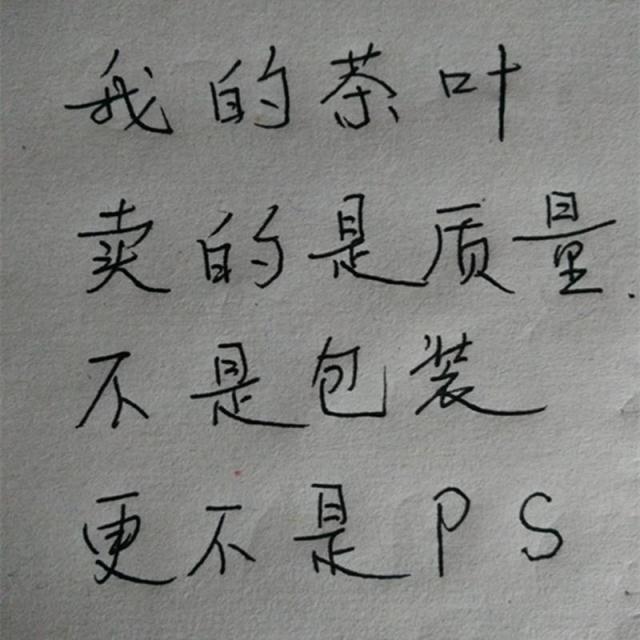 我的茶叶
卖的是质量.
不是包装
更不是PS